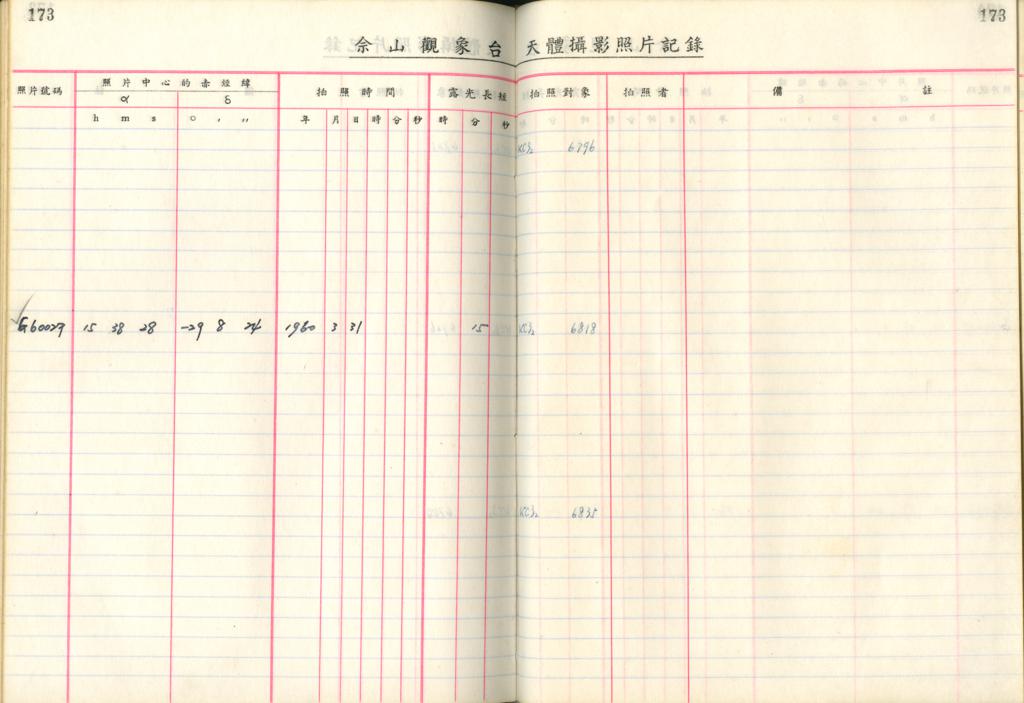 173 173
佘山觀象台 天體攝影照片記錄
照片號碼 照片中心的赤經緯 拍照時間 露光長短 拍照對象 拍照者 備註
α δ
h m s ○ ′ ″ 年 月 日 時 分 秒 時 分 秒
6796
G60029 15 38 28 -29 8 24 1960 3 31 15 6818
6835